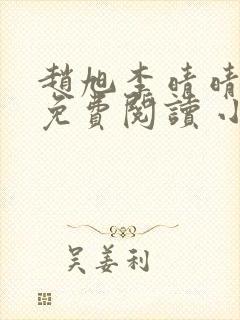 趙旭李晴晴
免費閱讀小
吴姜利